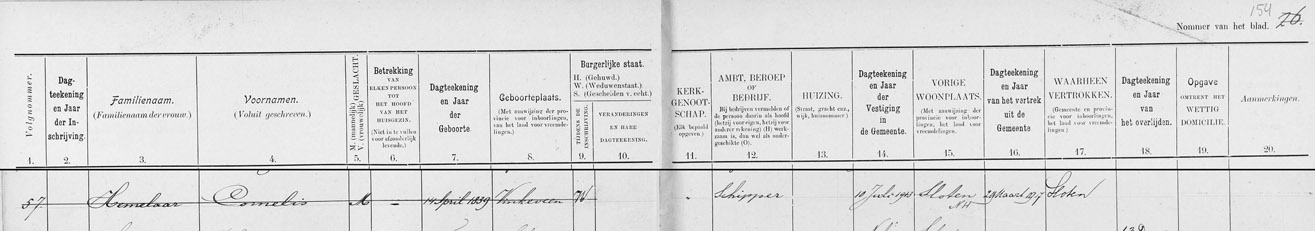 154
Nommer van het blad. 26.
Volgnommer.
Dag-
teekening
en Jaar
der In-
schrijving.
Familienaam.
(Familienaam der vrouw.)
Voornamen.
(Voluit geschreven.)
GESLACHT.
M. (mannelijk)
V. (vrouwelijk)
Betrekking
VAN
ELKEN PERSOON
TOT
HET HOOFD
VAN HET
HUISGEZIN.
(Niet in te vullen
voor afzonderlijk
levende.)
Dagteekening
en Jaar
der
Geboorte.
Geboorteplaats.
(Met aanwijzing der pro-
vincie voor inboorlingen,
van het land voor vreemde-
lingen.)
Burgerlijke staat.
H. (Gehuwd.)
W. (Weduwenstaat.)
S. (Gescheiden v. echt.)
TIJDENS DE
INSCHRIJVING.
VERANDERINGEN
EN HARE
DAGTEEKENING.
KERK-
GENOOT-
SCHAP.
(Elk bepaald
opgeven.)
AMBT, BEROEP
OF
BEDRIJF.
Bij bedrijven vermelden of
de persoon daarin als hoofd
(hetzij voor eigen, hetzij voor
andere rekening) (H) werk-
zaam is, dan wel als onder-
geschikte (O).
HUIZING.
(Straat, gracht enz.,
wijk, huisnommer.)
Dagteekening
en Jaar
der
Vestiging
in
de Gemeente.
VORIGE
WOONPLAATS.
(Met aanwijzing der
provincie voor inboor-
lingen, het land voor
vreemdelingen.)
Dagteekening
en Jaar
van het vertrek
uit de
Gemeente
WAARHEEN
VERTROKKEN.
(Gemeente en provin-
cie voor inboorlingen,
het land voor vreemde-
lingen.)
Dagteekening
en Jaar
van
het overlijden.
Opgave
OMTRENT HET
WETTIG
DOMICILIE.
Aanmerkingen.
1. 2. 3. 4. 5. 6. 7. 8. 9. 10. 11. 12. 13. 14. 15. 16. 17. 18. 19. 20.
57 Hemelaar Cornelis M – 14 April 1839 Vinkeveen W " Schipper 10 Juli Sloten NH 29 Maart 1917 Sloten